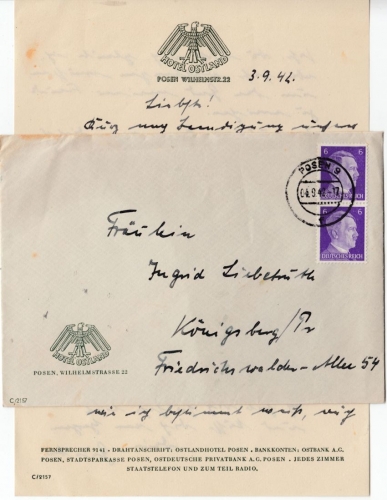 HOTEL OSTLAND
POSEN WILHELMSTR. 22
3.9.42.
Liebste!
Kurz nach Beendigung
POSEN 9
6 6
DEUTSCHES REICH
6 6
DEUTSCHES REICH
Fräulein
Ingrid Liebetruth
Königsberg/Pr
Friedrichswalder-Allee 54
HOTEL OSTLAND
POSEN, WILHELMSTRASSE 22
C/2157
wie ich bestimmt weiß,
FERNSPRECHER 9141 - DRAHTANSCHRIFT: OSTLANDHOTEL POSEN - BANKKONTEN: OSTBANK A.G.
POSEN, STADTSPARKASSE POSEN, OSTDEUTSCHE PRIVATBANK A.G. POSEN - JEDES ZIMMER
STAATSTELEFON UND ZUM TEIL RADIO.
C/2157